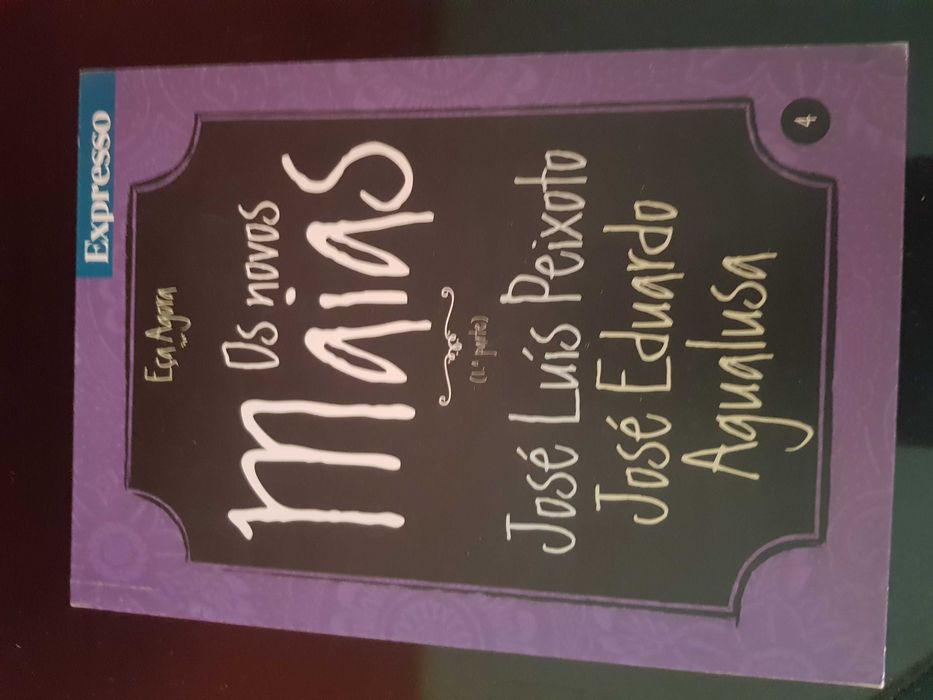 Expresso
Eça Agora
Os novos
Maias
(1.ª parte)
José Luís Peixoto
José Eduardo
Agualusa
4